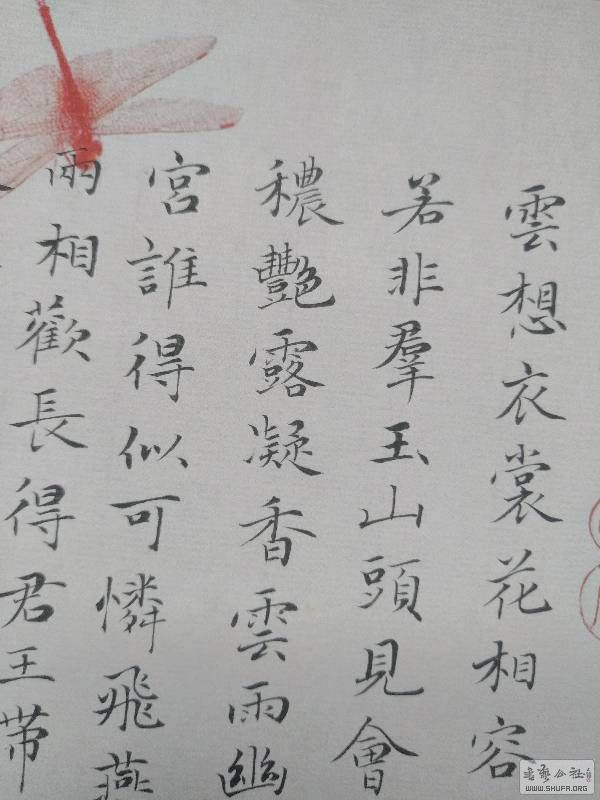 雲想衣裳花相容
若非羣玉山頭見會
穠豔露凝香雲雨幽
宮誰得似可憐飛燕
兩相歡長得君王帶
書藝公社
WWW.SHUFA.ORG